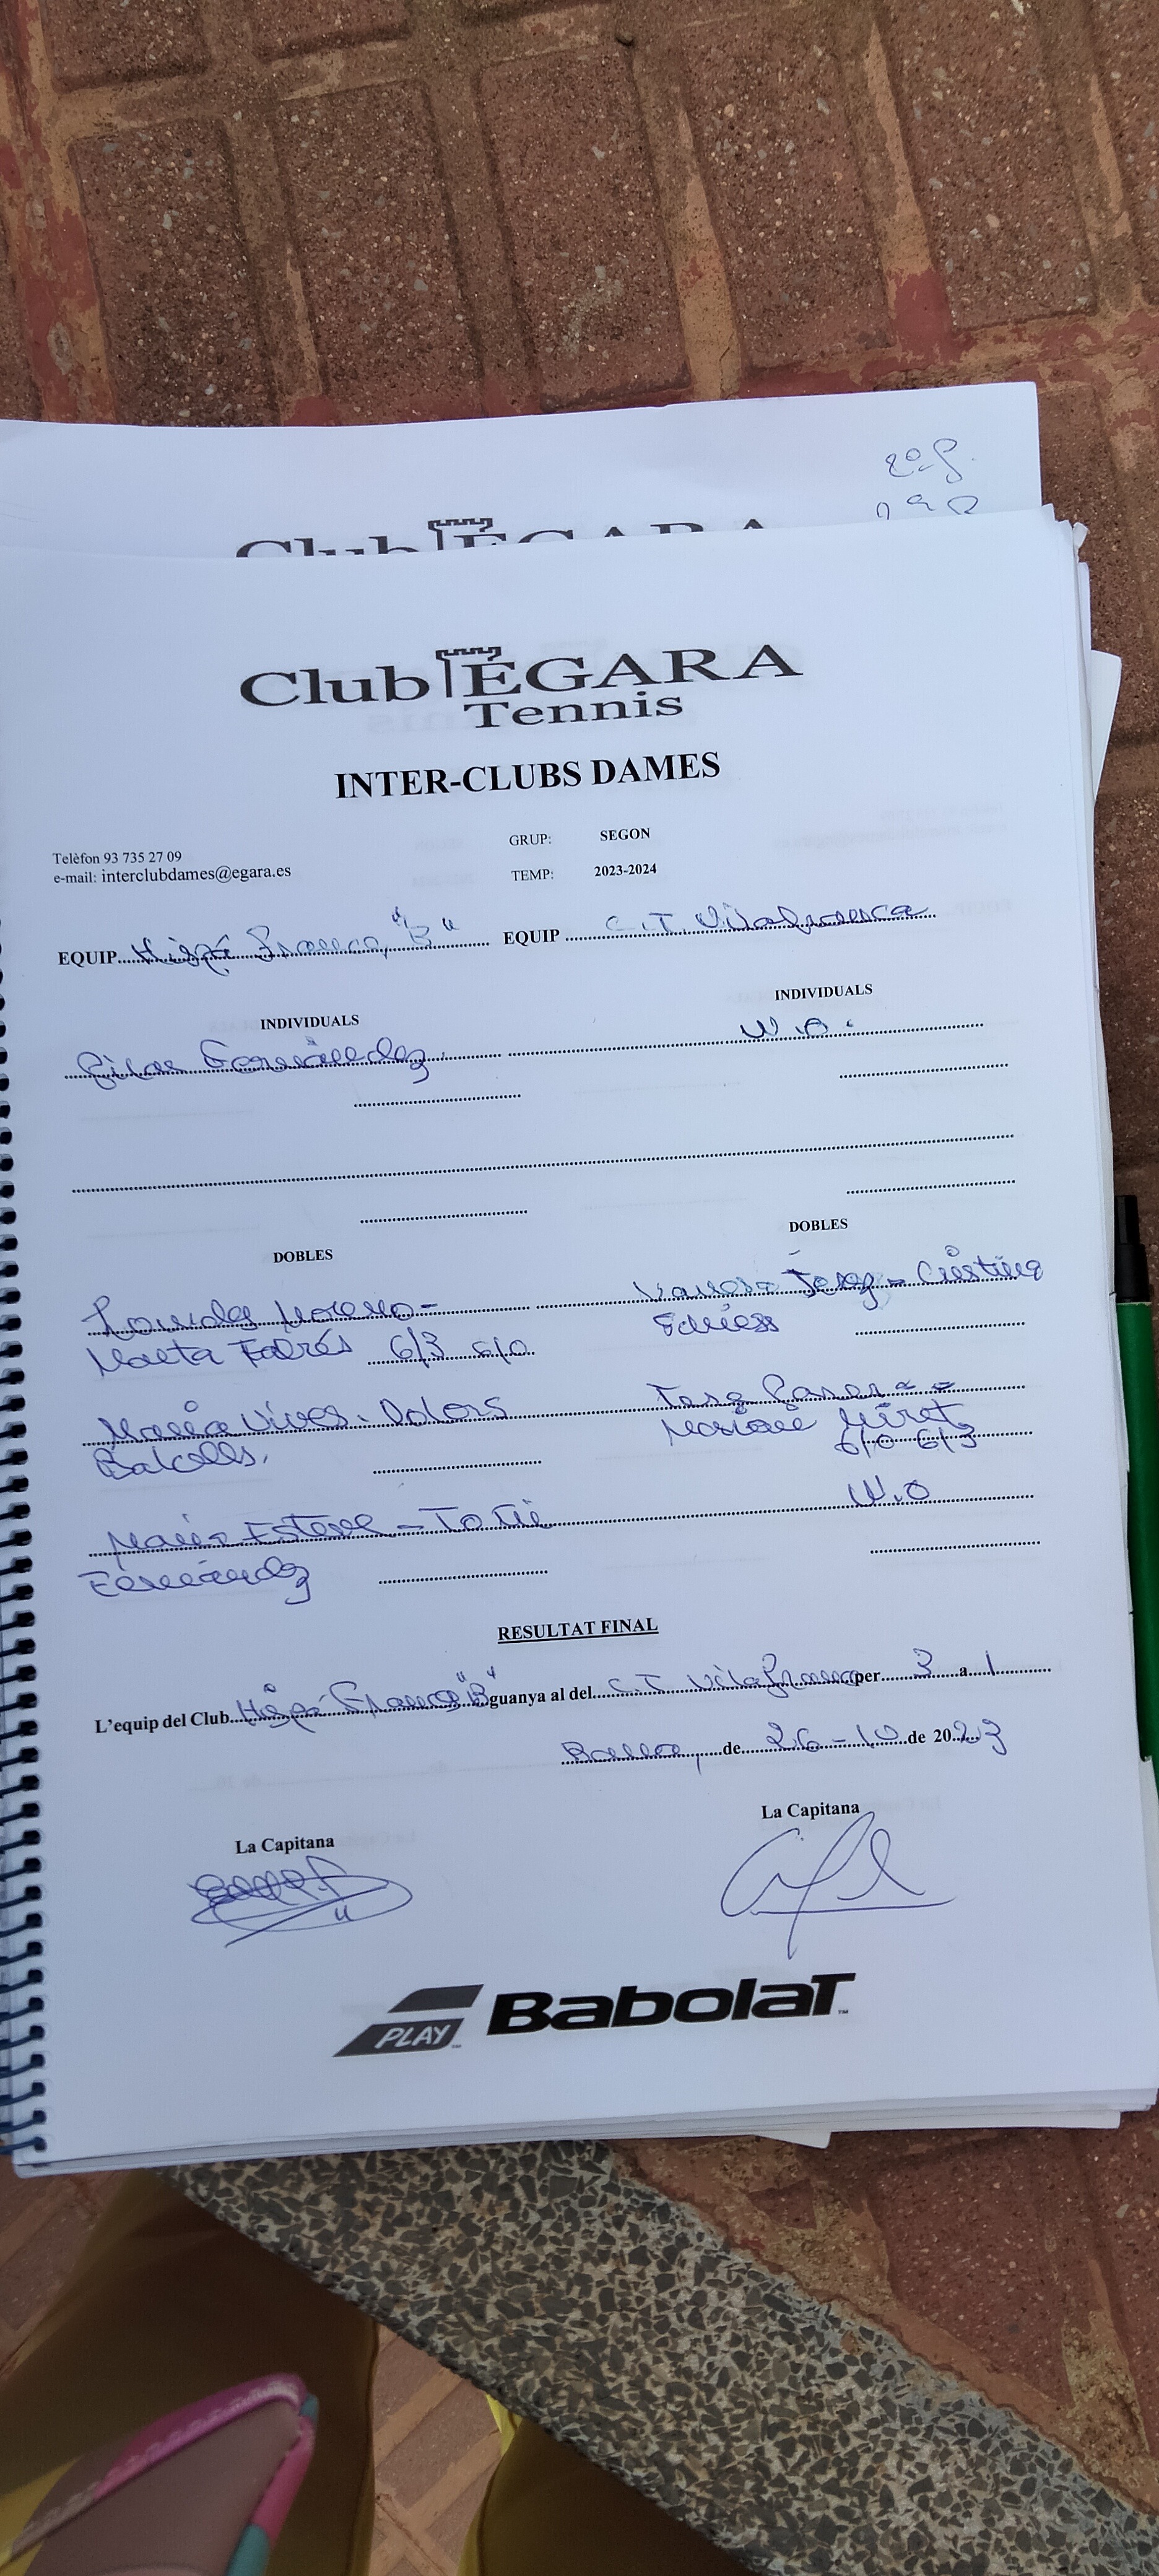 Club EGARA
Club ÈGARA
Tennis
INTER-CLUBS DAMES
GRUP: SEGON
Telèfon 93 735 27 09
e-mail: interclubdames@egara.es
TEMP: 2023-2024
EQUIP Hispà Francès "B" EQUIP C.T. Vilafranca
INDIVIDUALS INDIVIDUALS
Pilar Fernández W.O.
DOBLES DOBLES
Lourdes Moreno - Vanesa - Cristina
Marta Fabrés 6/3 6/0
Maria Vives - Dolors
Balcells, Mariona Miret
6/0 6/3
W.O
Maria Esteve -
Fernández
RESULTAT FINAL
L'equip del Club Hispà Francès "B" guanya al del C.T Vilafranca per 3 a 1
de 26-10 de 2023
La Capitana La Capitana
PLAY BabolaT